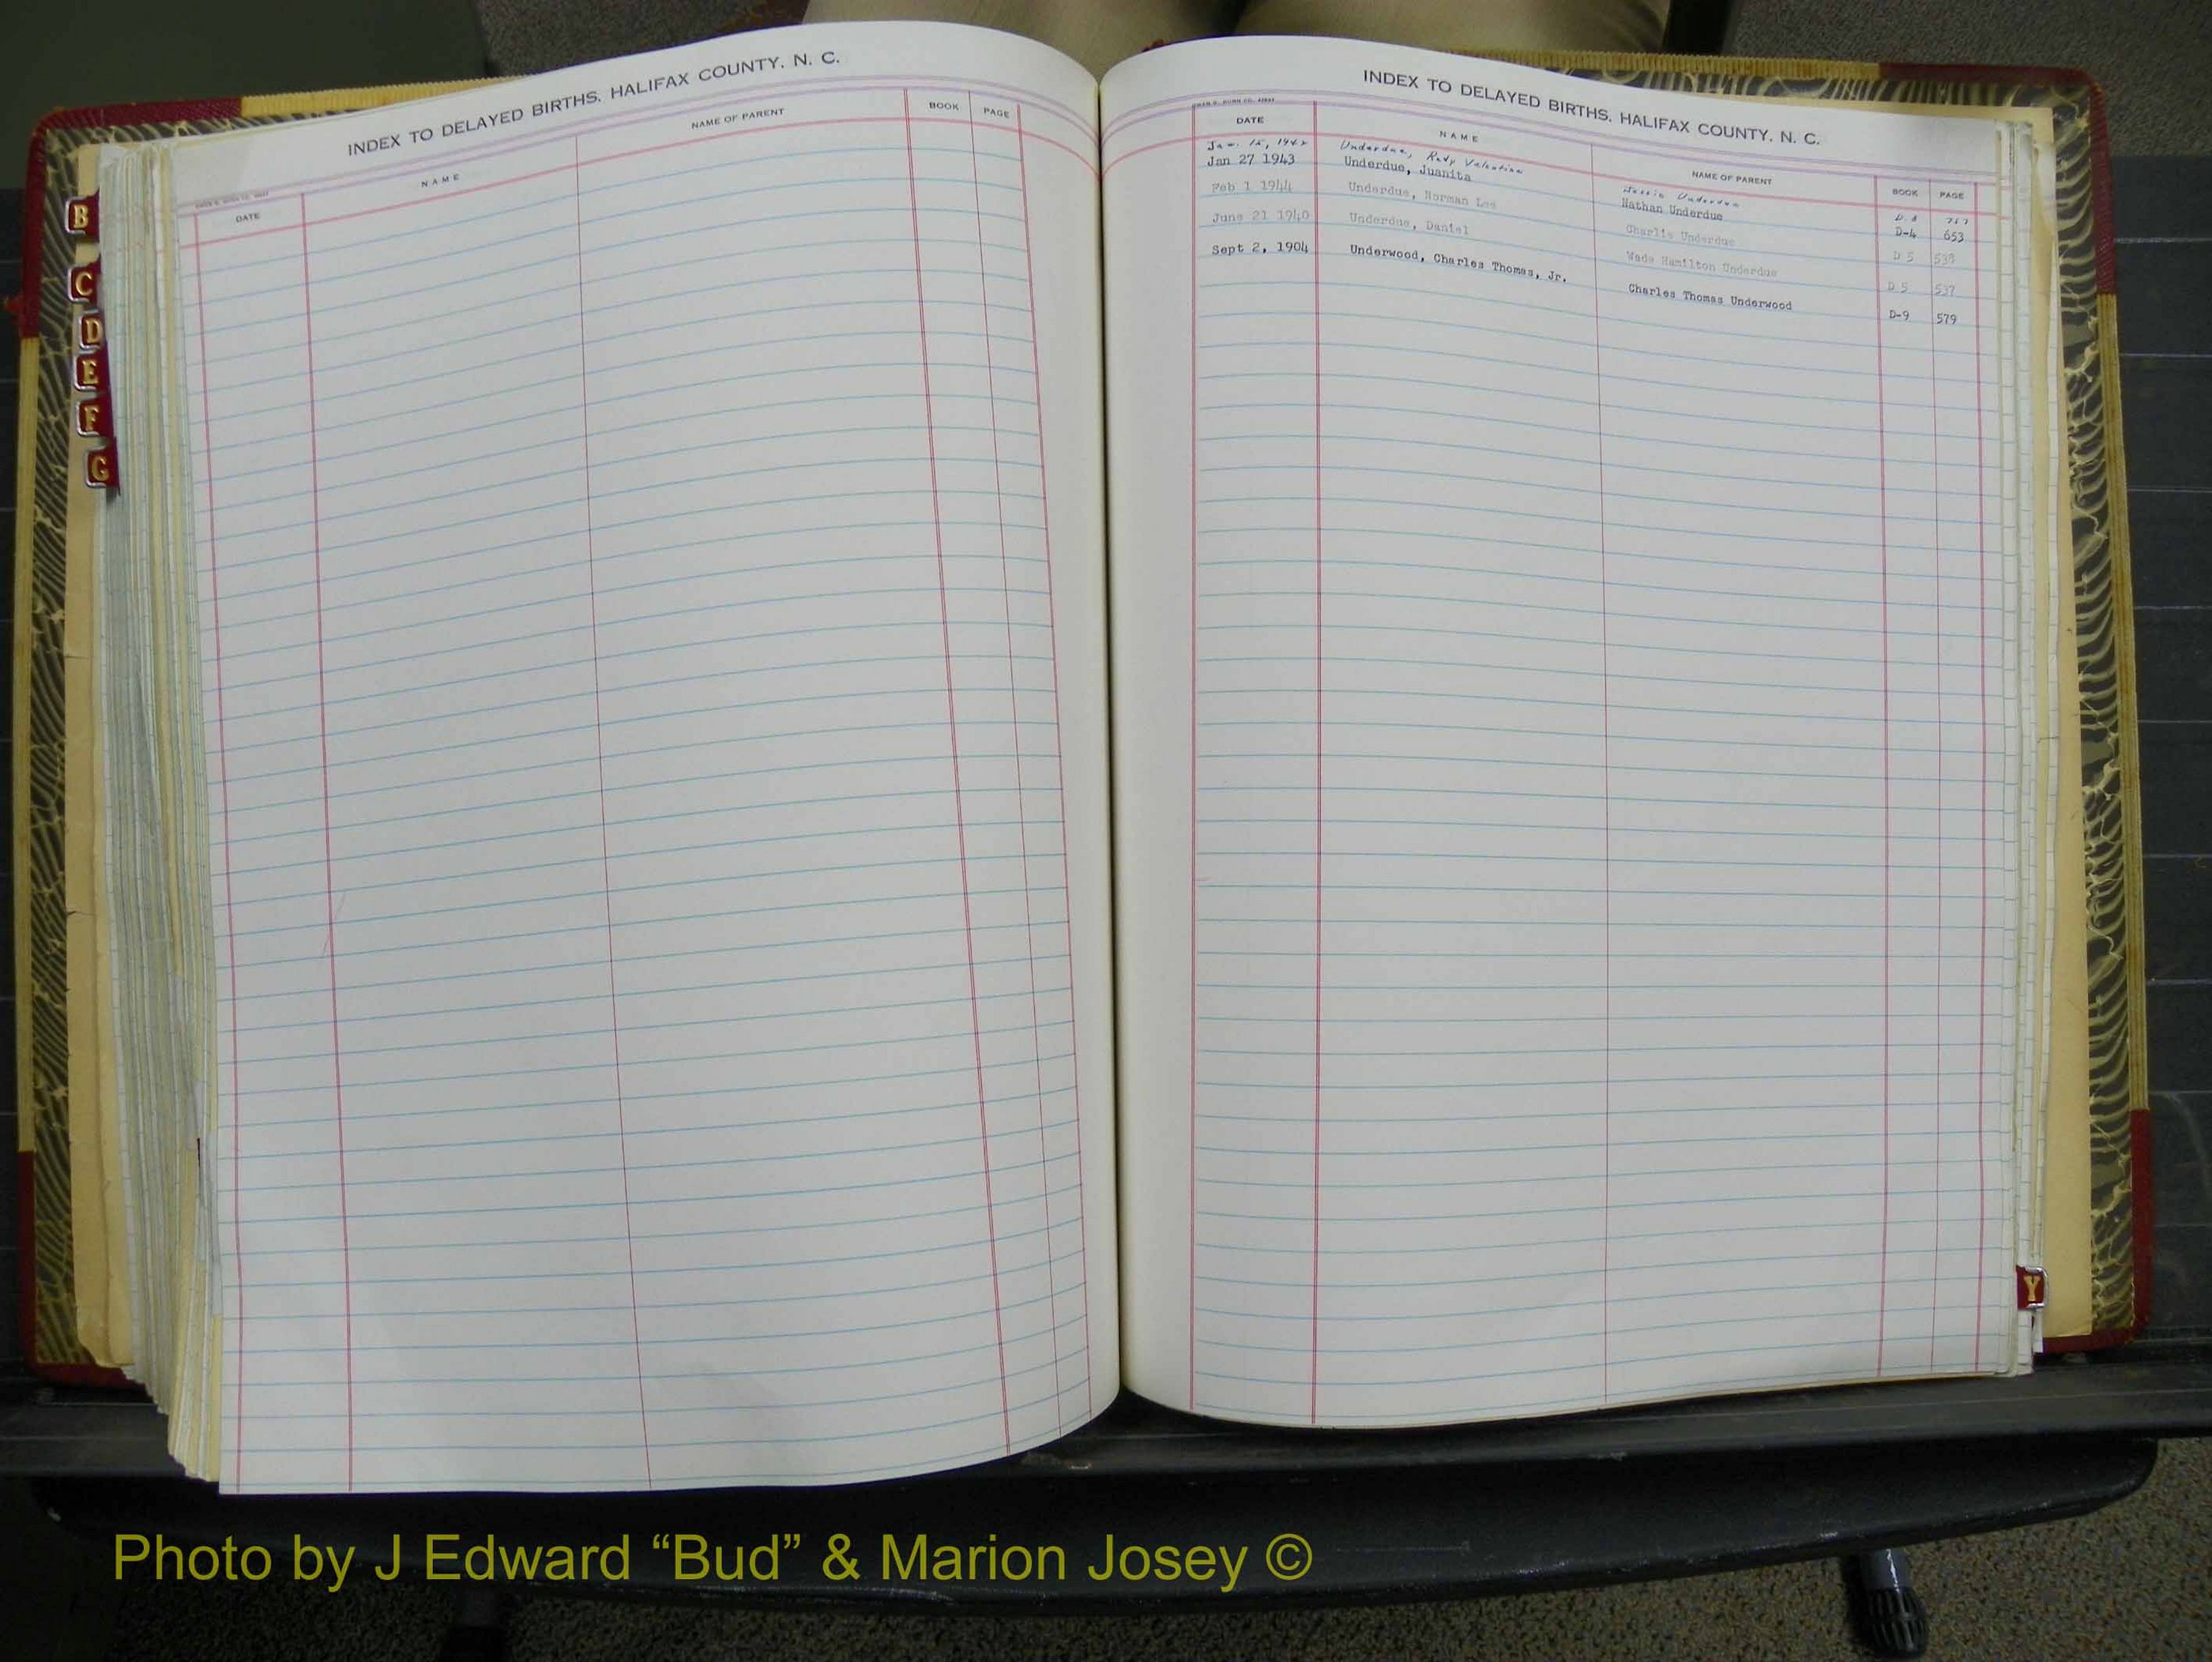 INDEX TO DELAYED BIRTHS, HALIFAX COUNTY, N. C.
DATE NAME NAME OF PARENT BOOK PAGE
B
C
D
E
F
G
INDEX TO DELAYED BIRTHS, HALIFAX COUNTY, N. C.
DATE NAME NAME OF PARENT BOOK PAGE
Jan. 15, Underdue, Rudy Valentine Underdue
Jan 27 1943 Underdue, Juanita Nathan Underdue D-4 653
Feb 1 1944 Underdue, Norman Lee Charlie Underdue D 5 538
June 21 1940 Underdue, Daniel Wade Hamilton Underdue D 5 537
Sept 2, 1904 Underwood, Charles Thomas, Jr. Charles Thomas Underwood D-9 579
Y
Photo by J Edward “Bud” & Marion Josey ©